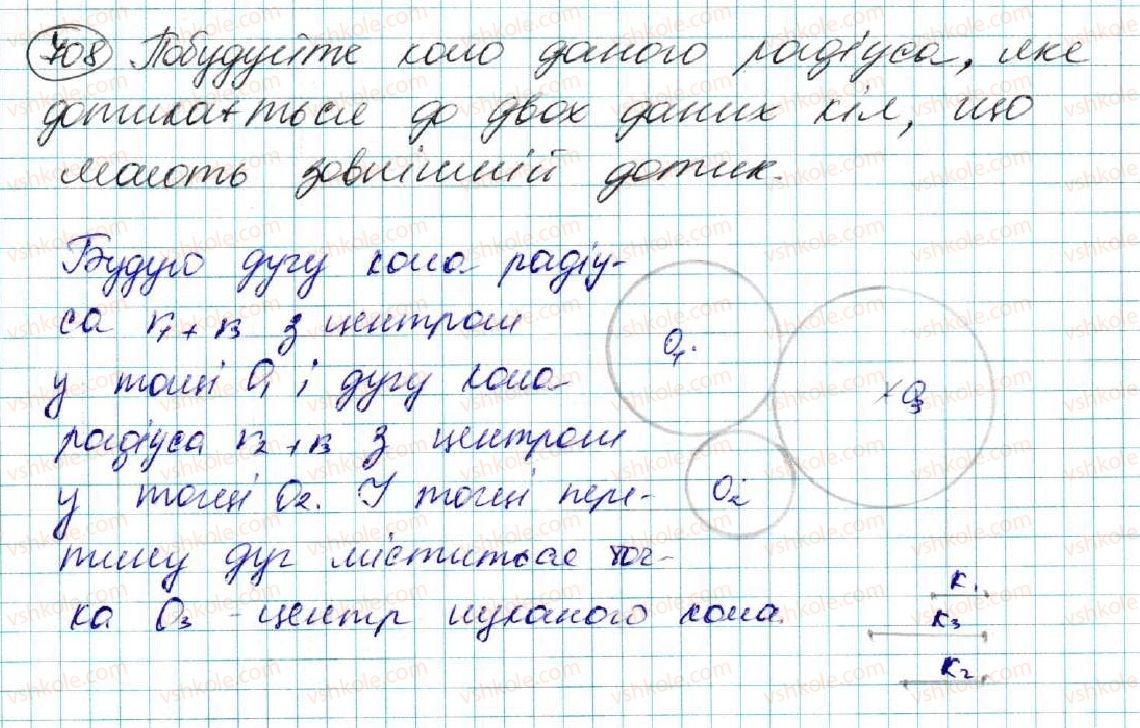 708 Побудуйте коло даного радіуса, яке
дотикається до двох даних кіл, що
мають зовнішній дотик.
Будую дугу кола радіу-
са r₁ + r₃ з центром
у точці O₁ і дугу кола
радіуса r₂ + r₃ з центром
у точці O₂. У точці пере-
тину дуг міститься точ-
ка O₃ - центр шуканого кола.
O₁
O₃
O₂
r₁
r₃
r₂
vshkole.com